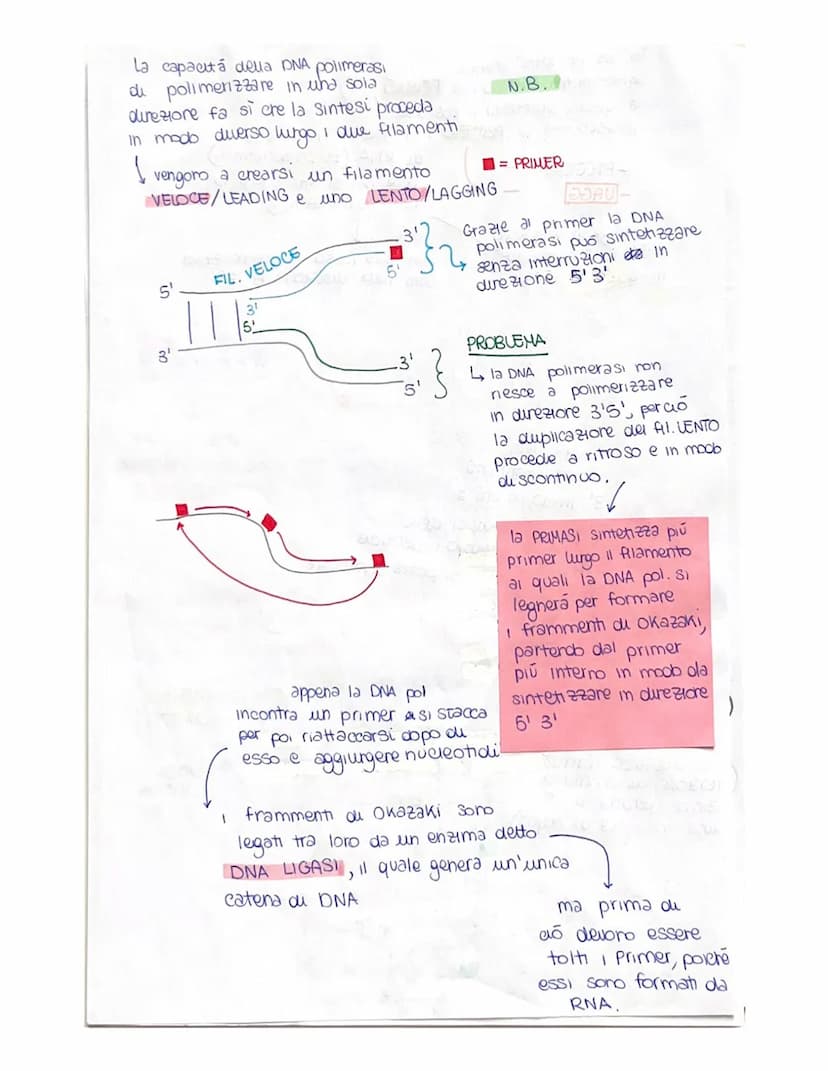 La capacitá della DNA polimerasi
di polimerizzare in una sola
direzione fa sì che la sintesi proceda
in modo diverso lungo i due filamenti
N.B.
vengono a crearsi un filamento
VELOCE/LEADING e uno LENTO/LAGGING
= PRIMER
FIL. VELOCE
3'
5'
5'
3'
5'
3'
3'
5'
Grazie al primer la DNA
polimerasi può sintetizzare
senza interruzioni in
direzione 5'3'
PROBLEMA
la DNA polimerasi non
riesce a polimerizzare
in direzione 3'5', perciò
la duplicazione del fil. LENTO
procede a ritroso e in modo
discontinuo.
la PRIMASI sintetizza più
primer lungo il filamento
ai quali la DNA pol. si
legherá per formare
i frammenti di Okazaki,
partendo dal primer
più interno in modo da
sintetizzare in direzione
5' 3'
appena la DNA pol
incontra un primer si stacca
per poi riattaccarsi dopo di
esso e aggiungere nucleotidi
i frammenti di Okazaki sono
legati tra loro da un enzima detto
DNA LIGASI, il quale genera un'unica
catena di DNA
ma prima di
ciò devono essere
tolti i Primer, poiché
essi sono formati da
RNA.